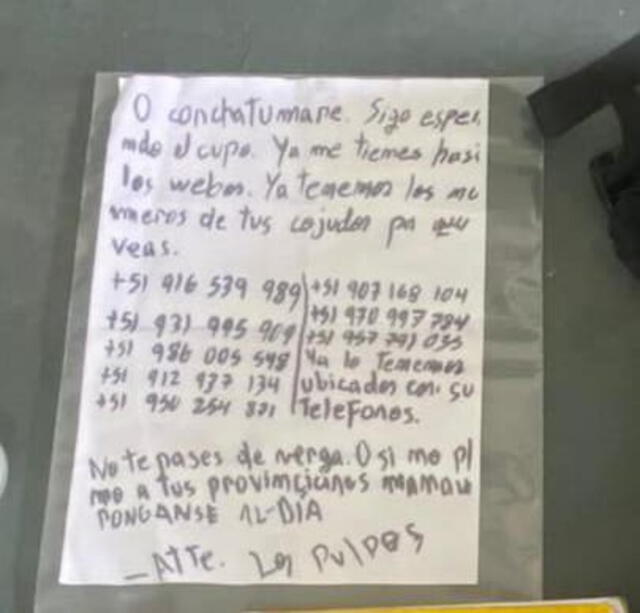 O conchatumare. Sigo esper
ndo el cupo. Ya me tienes hasi
los webos. Ya tenemos los nu
meros de tus cojudos pa que
veas.
+51 916 539 989 +51 907 168 104
+51 931 995 909 +51 970 997 784
+51 986 005 548 +51 957 791 035
+51 912 937 134 Ya lo Tenemos
+51 950 254 821 ubicados con su
Telefonos.
No te pases de verga. O si mo pl
mo a tus provincianos
PONGANSE AL-DIA
- ATTE. Los Pulpos